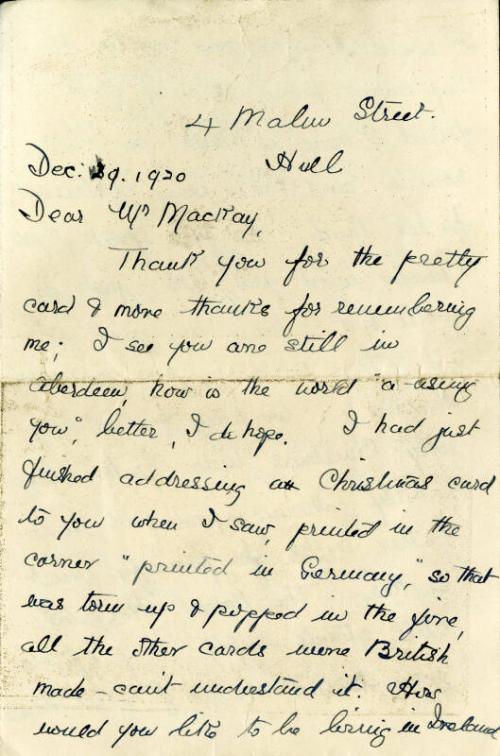 4 Malm Street.
Hull
Dec: 29. 1920
Dear Mr MacKay,
Thank you for the pretty
card & more thanks for remembering
me; I see you are still in
aberdeen, how is the world "a-using
you", better, I do hope. I had just
finished addressing a Christmas card
to you when I saw, printed in the
corner "printed in Germany," so that
was torn up & popped in the fire,
all the other cards were British
made - can't understand it. How
would you like to be living in Ireland